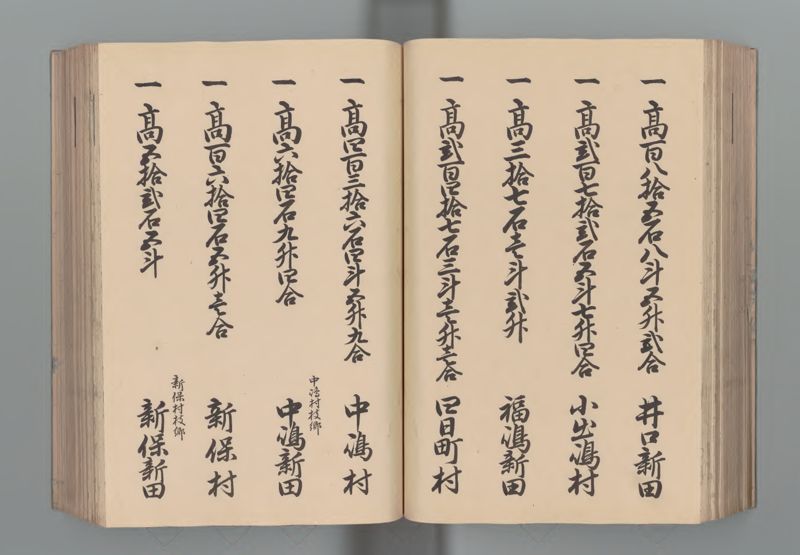 一 高百八拾五石八斗五升弐合 井口新田
一 高弐百七拾弐石五斗七升四合 小出嶋村
一 高三拾七石壱斗弐升 福嶋新田
一 高弐百四拾七石三斗壱升壱合 四日町村
一 高四百三拾六石四斗五升九合 中嶋村
中嶋村枝郷
一 高六拾四石九升四合 中嶋新田
一 高百六拾四石五升壱合 新保村
新保村枝郷
一 高五拾弐石五斗 新保新田